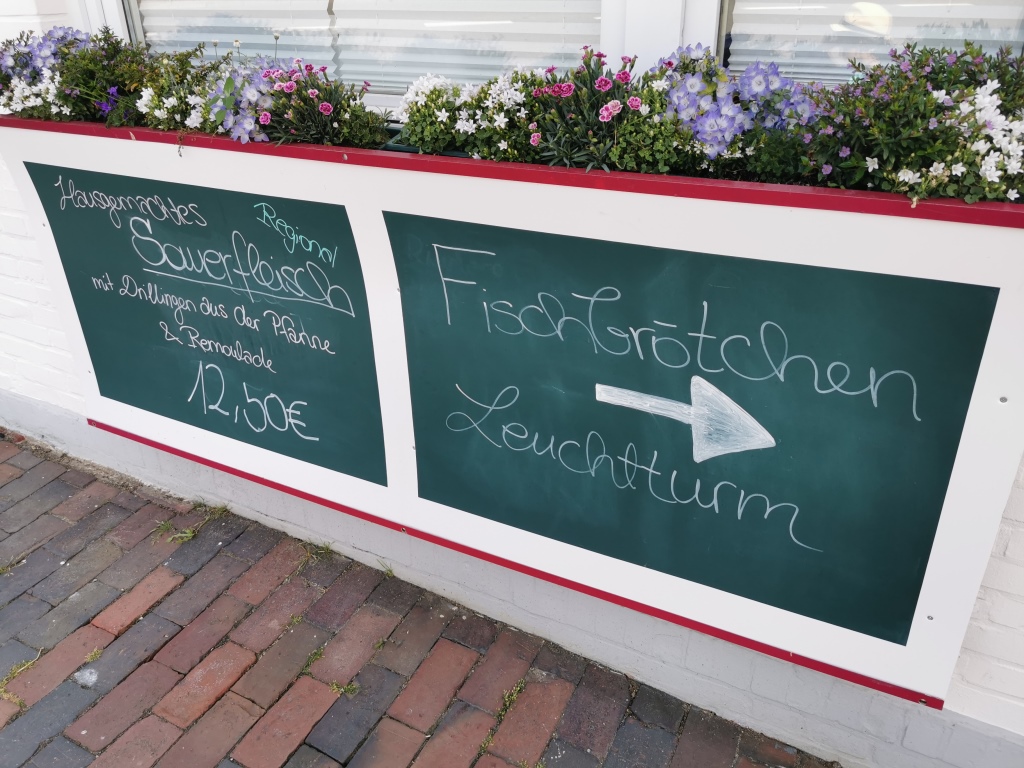 Hausgemachtes
Regional
Sauerfleisch
mit Drillingen aus der Pfanne
& Remoulade
12,50€
Fischbrötchen
Leuchtturm